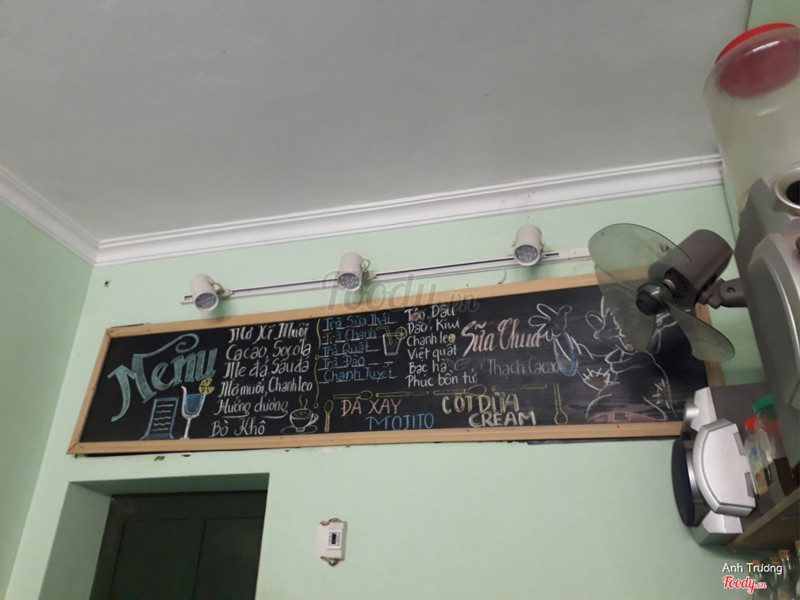 Menu
Mơ Xí Muội
Cacao, Sôcôla
Me đá Sấu đá
Mơ muối, Chanh leo
Hướng dương
Bò Khô
Trà Sữa Thái
Trà Chanh
Trà Quất
Trà Đào
Chanh Tuyết
Táo, Dâu
Đào, Kiwi
Chanh leo
Việt quất
Bạc hà
Phúc bồn tử
Sữa Chua
Thạch Cacao
ĐÁ XAY
MOJITO
CỐT DỪA
CREAM
Foody.vn
Anh Trương
Foody.vn